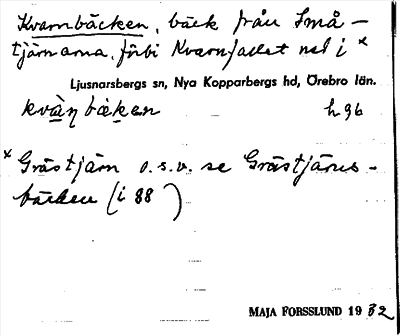 Kvarnbäcken, bäck från Små-
tjärnarna förbi Kvarnfallet ned i x
Ljusnarsbergs sn, Nya Kopparbergs hd, Örebro län.
kvà̱ṇbäḵen h 96
x Grästjärn o.s.v. se Grästjärns-
bäcken (i 88 )
MAJA FORSSLUND 1932